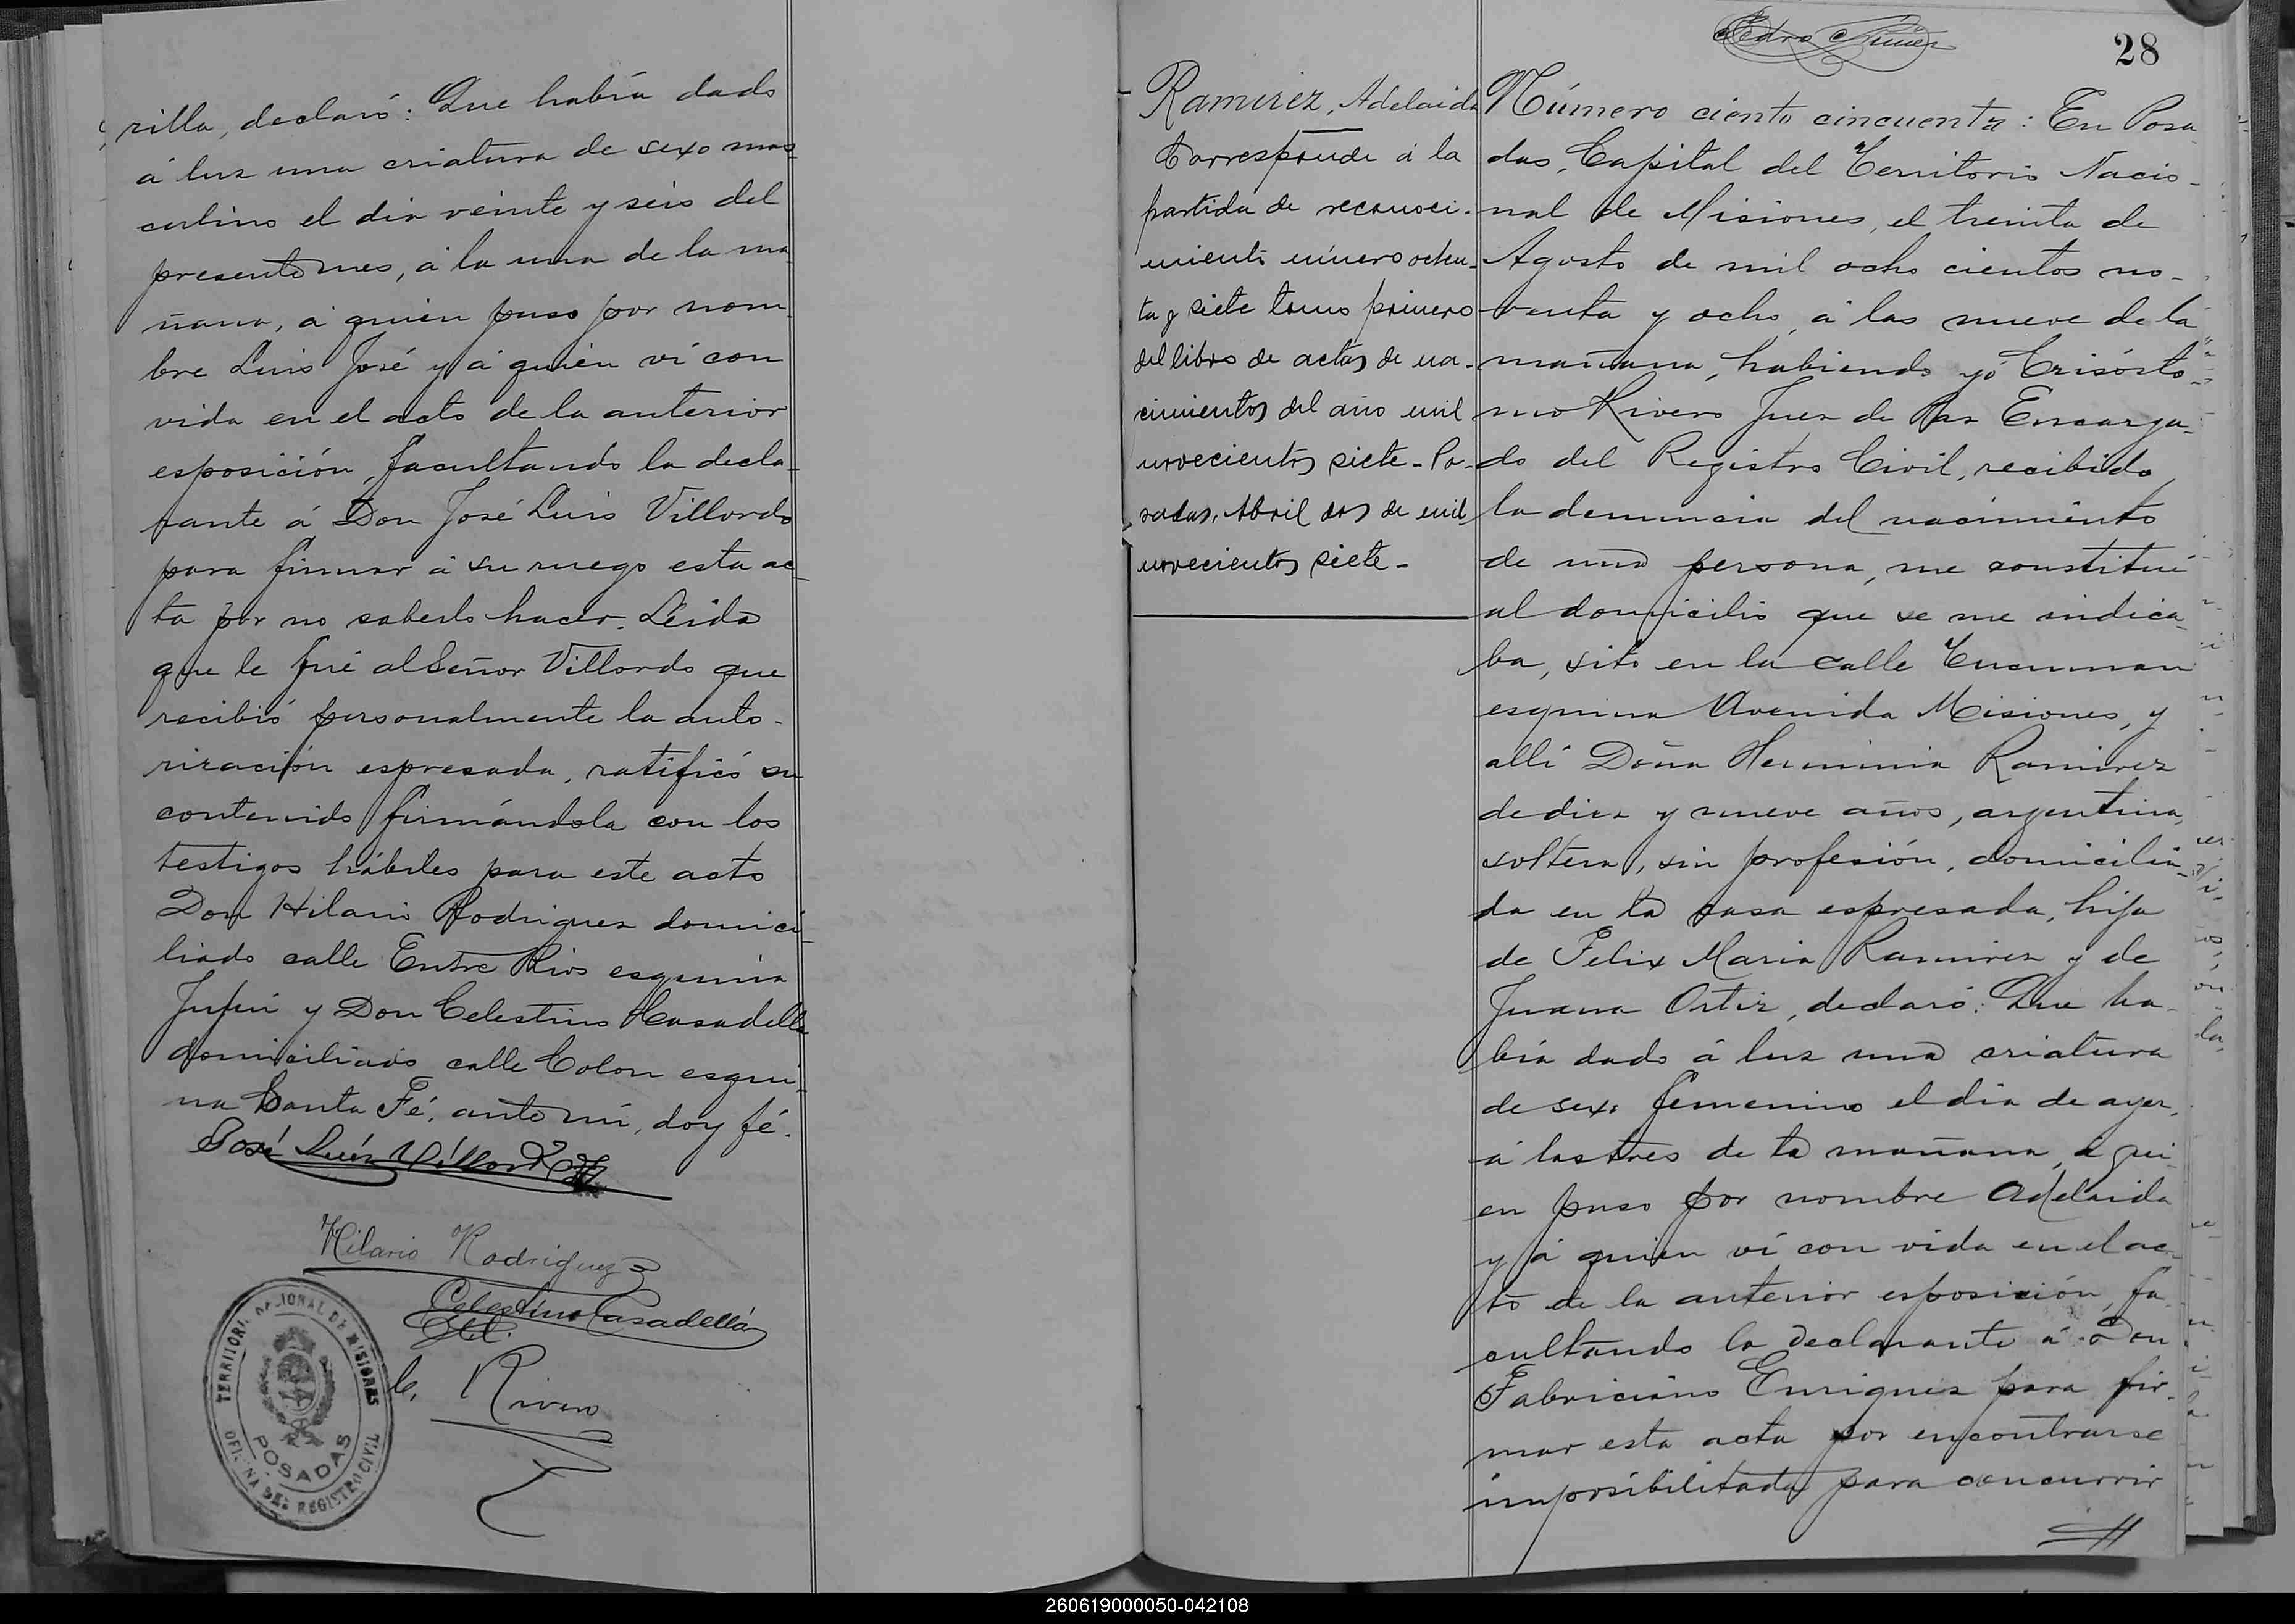 rilla, declaró: Que había dado
á luz una criatura de sexo mas
culino el dia veinte y seis del
presente mes, á la una de la ma
ñana, á quien puso por nom
bre Luis José y á quién ví con
vida en el acto de la anterior
esposición, facultando la decla-
rante á Don José Luis Villordo
para firmar á su ruego esta ac
ta por no saberlo hacer. Leida
que le fué al Señor Villordo que
recibió personalmente la auto-
rización espresada, ratificó su
contenido firmándola con los
testigos hábiles para este acto
Don Hilario Rodriguez domici
liado calle Entre Rios esquina
Junin y Don Celestino Casadella
domiciliado calle Colon esqui-
na Santa Fé, ante mí, doy fé.
José Luis Villordo
Hilario Rodriguez
Celestino Casadellá
C. Rivero
TERRITORIO NACIONAL DE MISIONES
POSADAS
OFICINA DEL REGISTRO CIVIL
28
Ramirez, Adelaida
Corresponde á la
partida de reconoci-
miento número ochen-
ta y siete tomo primero
del libro de actas de na-
cimientos del año mil
novecientos siete - Po-
sadas, Abril dos de mil
novecientos siete -
Número ciento cincuenta: En Posa
das, Capital del Territorio Nacio-
nal de Misiones, el treinta de
Agosto de mil ocho cientos no-
venta y ocho, á las nueve de la
mañana, habiendo yó Crisósto-
mo Rivero Juez de Paz Encarga-
do del Registro Civil, recibido
la denuncia del nacimiento
de una persona, me constituí
al domicilio que se me indica
ba, sito en la calle Tucuman
esquina Avenida Misiones, y
allí Doña Herminia Ramirez
de diez y nueve años, argentina,
soltera, sin profesión, domicilia-
da en la casa espresada, hija
de Felix Maria Ramirez y de
Juana Ortiz, declaró: Que ha-
bía dado á luz una criatura
de sexo femenino el dia de ayer,
á las tres de la mañana, á qui
en puso por nombre Adelaida
y á quien ví con vida en el ac-
to de la anterior esposición, fa
cultando la declarante á Don
Fabriciano Enriquez para fir-
mar esta acta por encontrarse
imposibilitada para concurrir
260619000050-042108